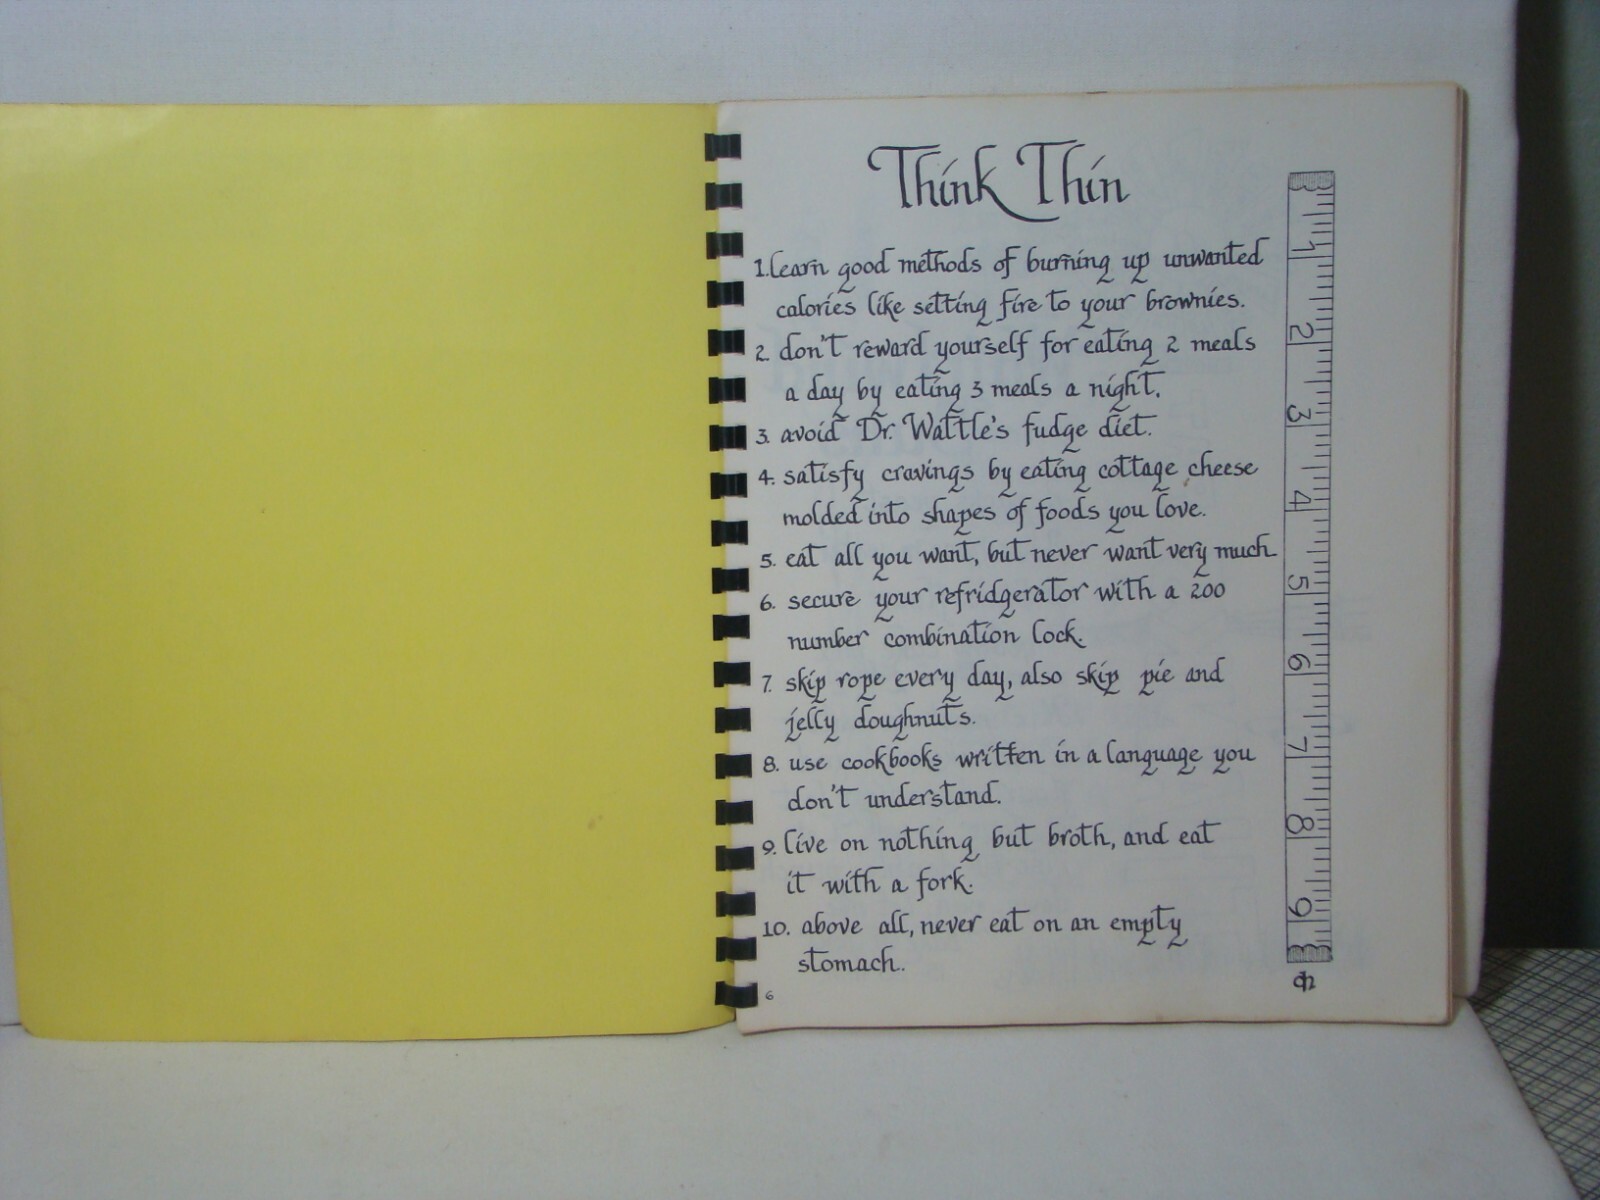 Think Thin
1. learn good methods of burning up unwanted
calories like setting fire to your brownies.
2. don't reward yourself for eating 2 meals
a day by eating 3 meals a night.
3. avoid Dr. Wattle's fudge diet.
4. satisfy cravings by eating cottage cheese
molded into shapes of foods you love.
5. eat all you want, but never want very much
6. secure your refridgerator with a 200
number combination lock.
7. skip rope every day, also skip pie and
jelly doughnuts.
8. use cookbooks written in a language you
don't understand.
9. live on nothing but broth, and eat
it with a fork.
10. above all, never eat on an empty
stomach.
6
1
2
3
4
5
6
7
8
9